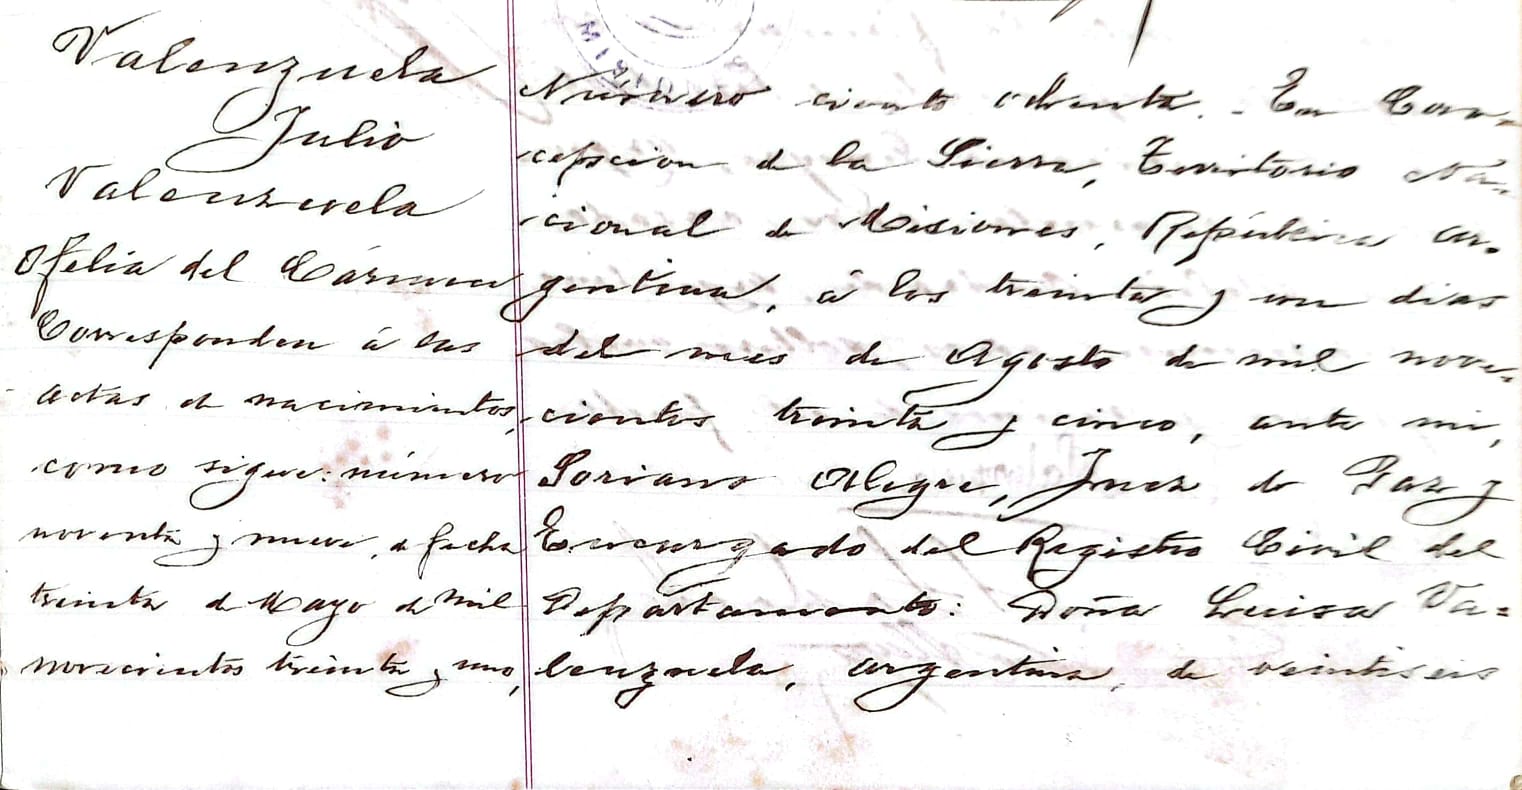 Valenzuela
Julio
Valenzuela
Ofelia del Cármen
Corresponden á las
actas de nacimientos,
como sigue: número
noventa y nueve, de fecha
treinta de Mayo de mil
novecientos treinta y uno,
Número ciento ochenta. - En Con-
cepcion de la Sierra, Territorio Na-
cional de Misiones, República Ar-
gentina, á los treinta y un dias
del mes de Agosto de mil nove-
cientos treinta y cinco, ante mi,
Soriano Alegre, Juez de Paz y
Encargado del Registro Civil del
Departamento: Doña Luisa Va-
lenzuela, argentina, de veintiseis